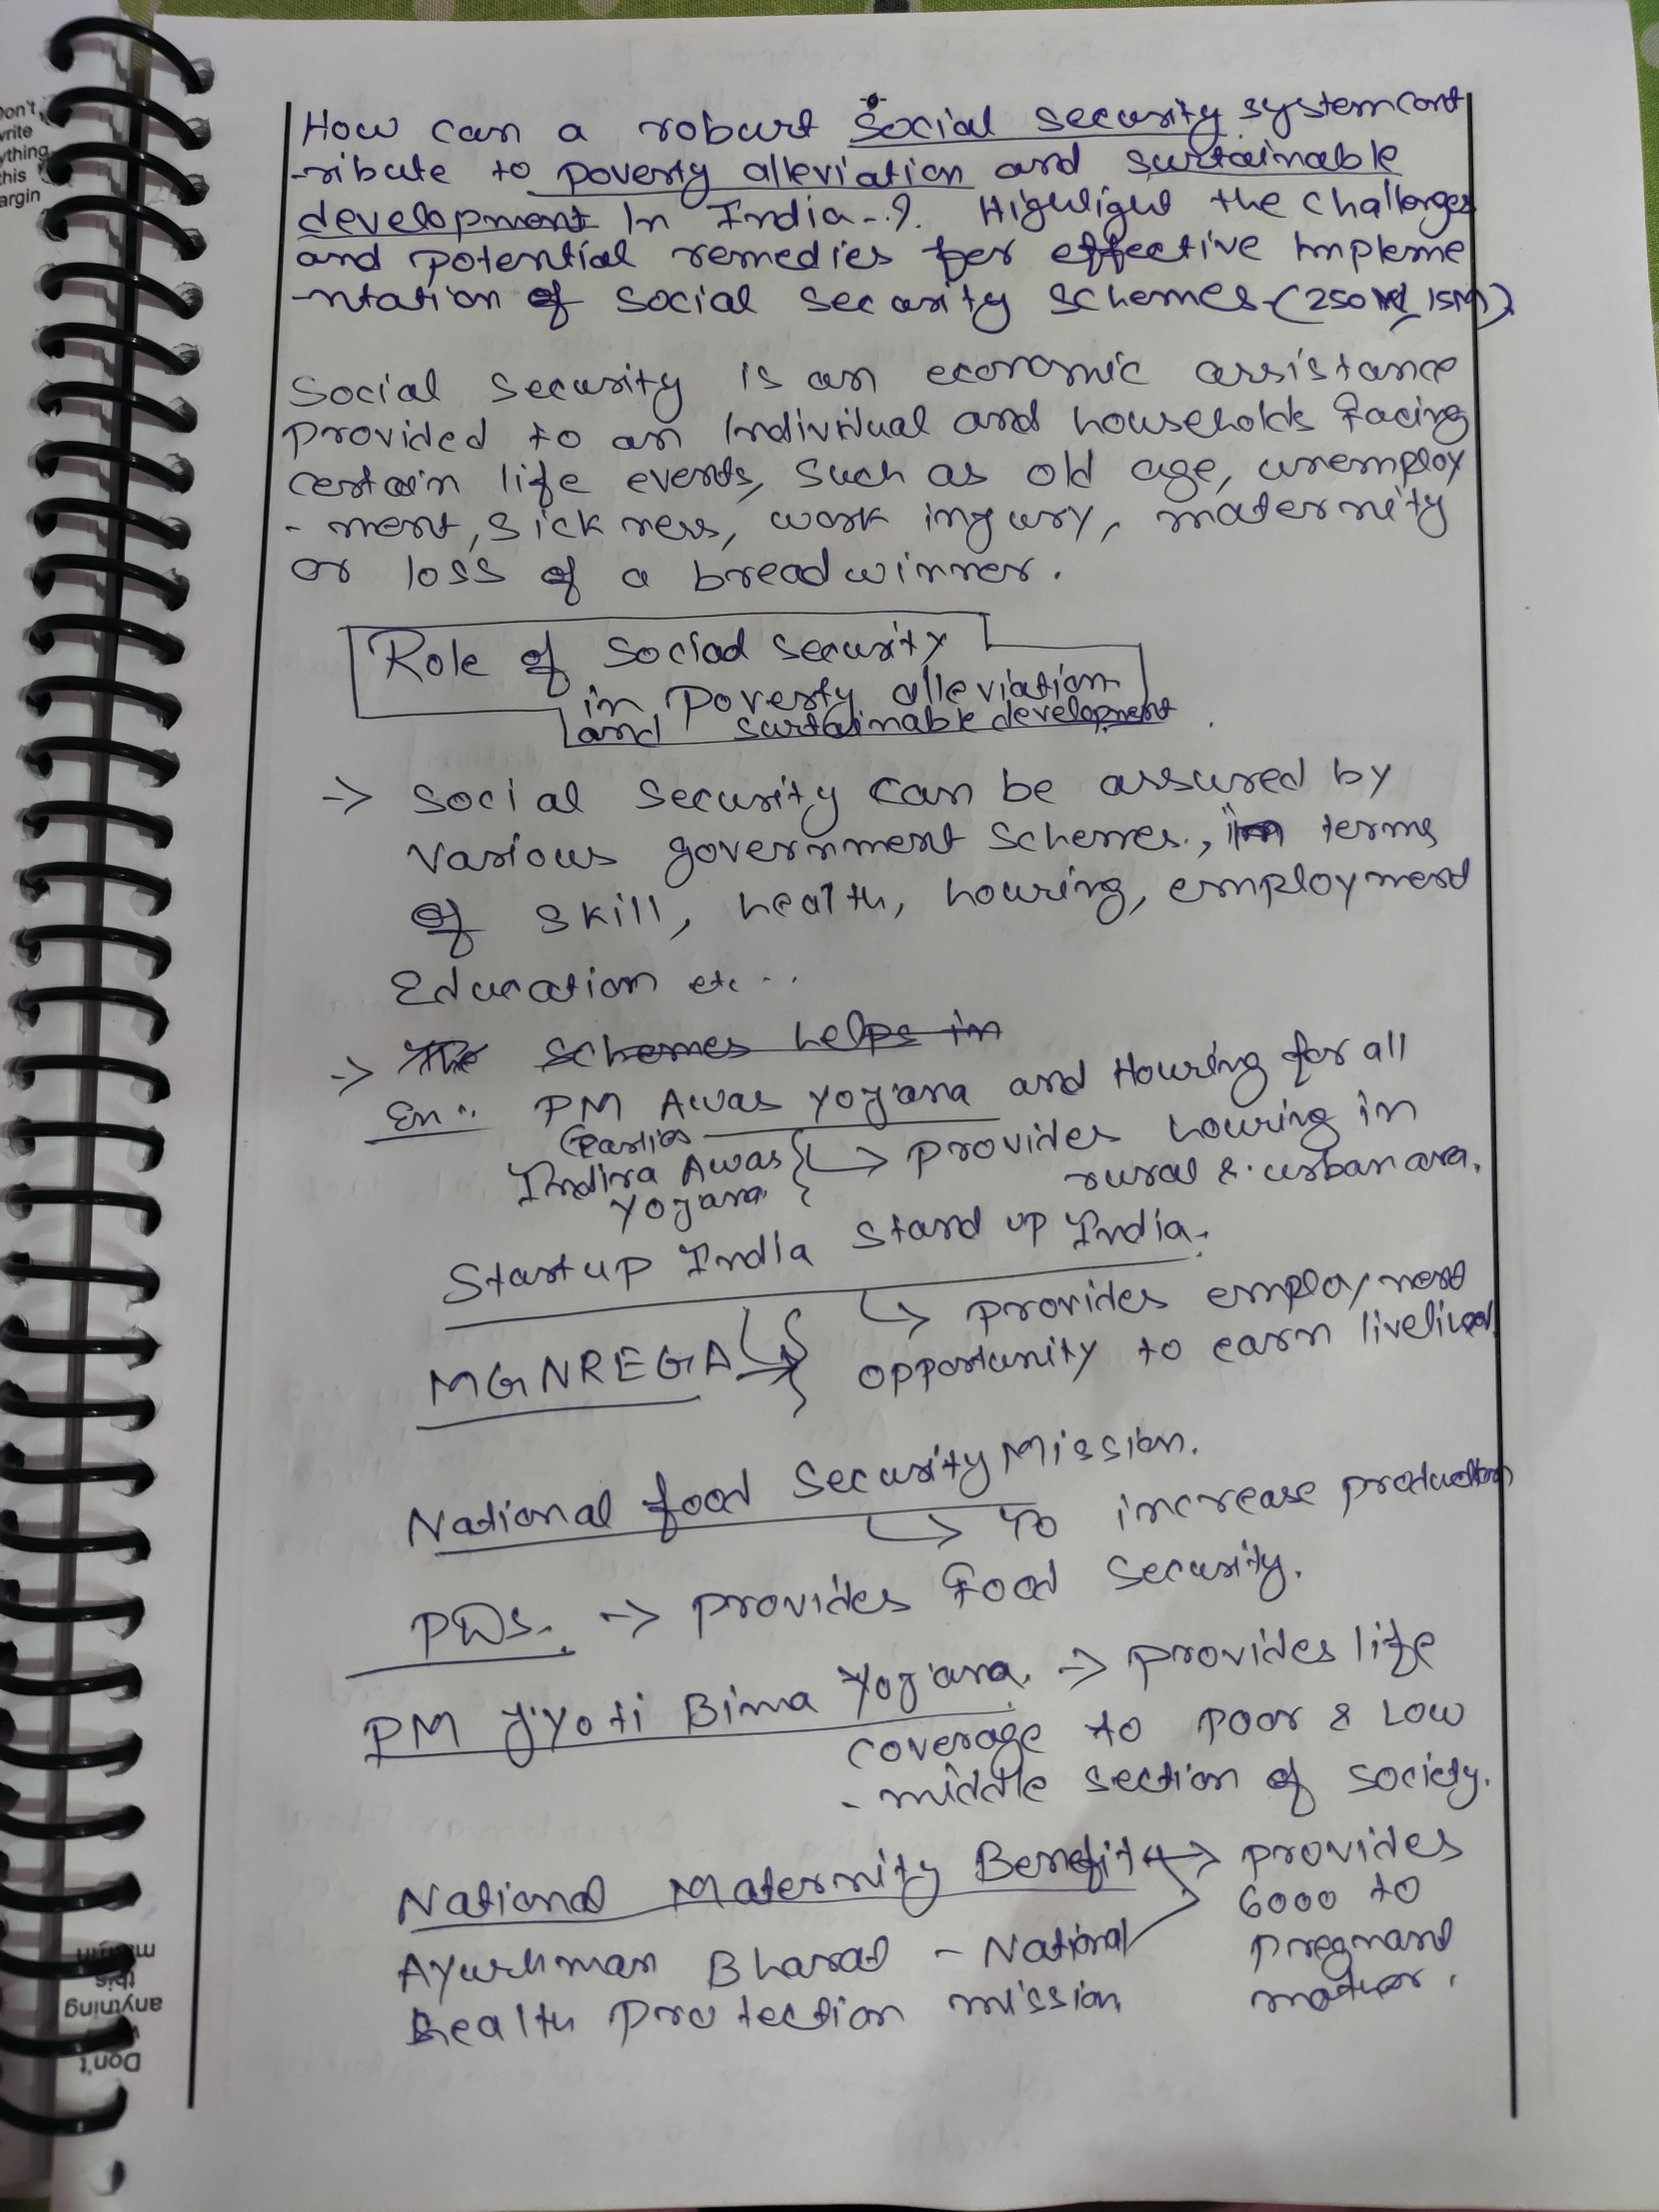 Don't
write
anything
this
margin
How can a robust social security system cont
-ribute to poverty alleviation and sustainable
development In India-.?. Highlight the challenges
and potential remedies for effective impleme
-ntation of social security schemes-(250 W, 15M)
Social security is an economic assistance
provided to an individual and households facing
certain life events, such as old age, unemploy
- ment, sickness, work injury, maternity
or loss of a breadwinner.
Role of Social security
in poverty alleviation
and sustainable development.
-> Social security can be assured by
various government schemes., in terms
of skill, health, housing, employment
Education etc...
-> The schemes helps in
En:. PM Awas Yojana and Housing for all
(Earlier
Indira Awas
Yojana
↳ provides housing in
rural & urban area.
Startup India Stand up India.
↳ provides employment
opportunity to earn livelihood
MGNREGA
National food Security Mission.
↳ To increase production
PDS. -> provides Food Security.
PM Jyoti Bima Yojana. -> provides life
coverage to poor & Low
- middle section of society.
National Maternity Benefit -> provides
6000 to
pregnant
mother.
Ayushman Bharat - National
Health Protection mission
margin
this
anything
Don't